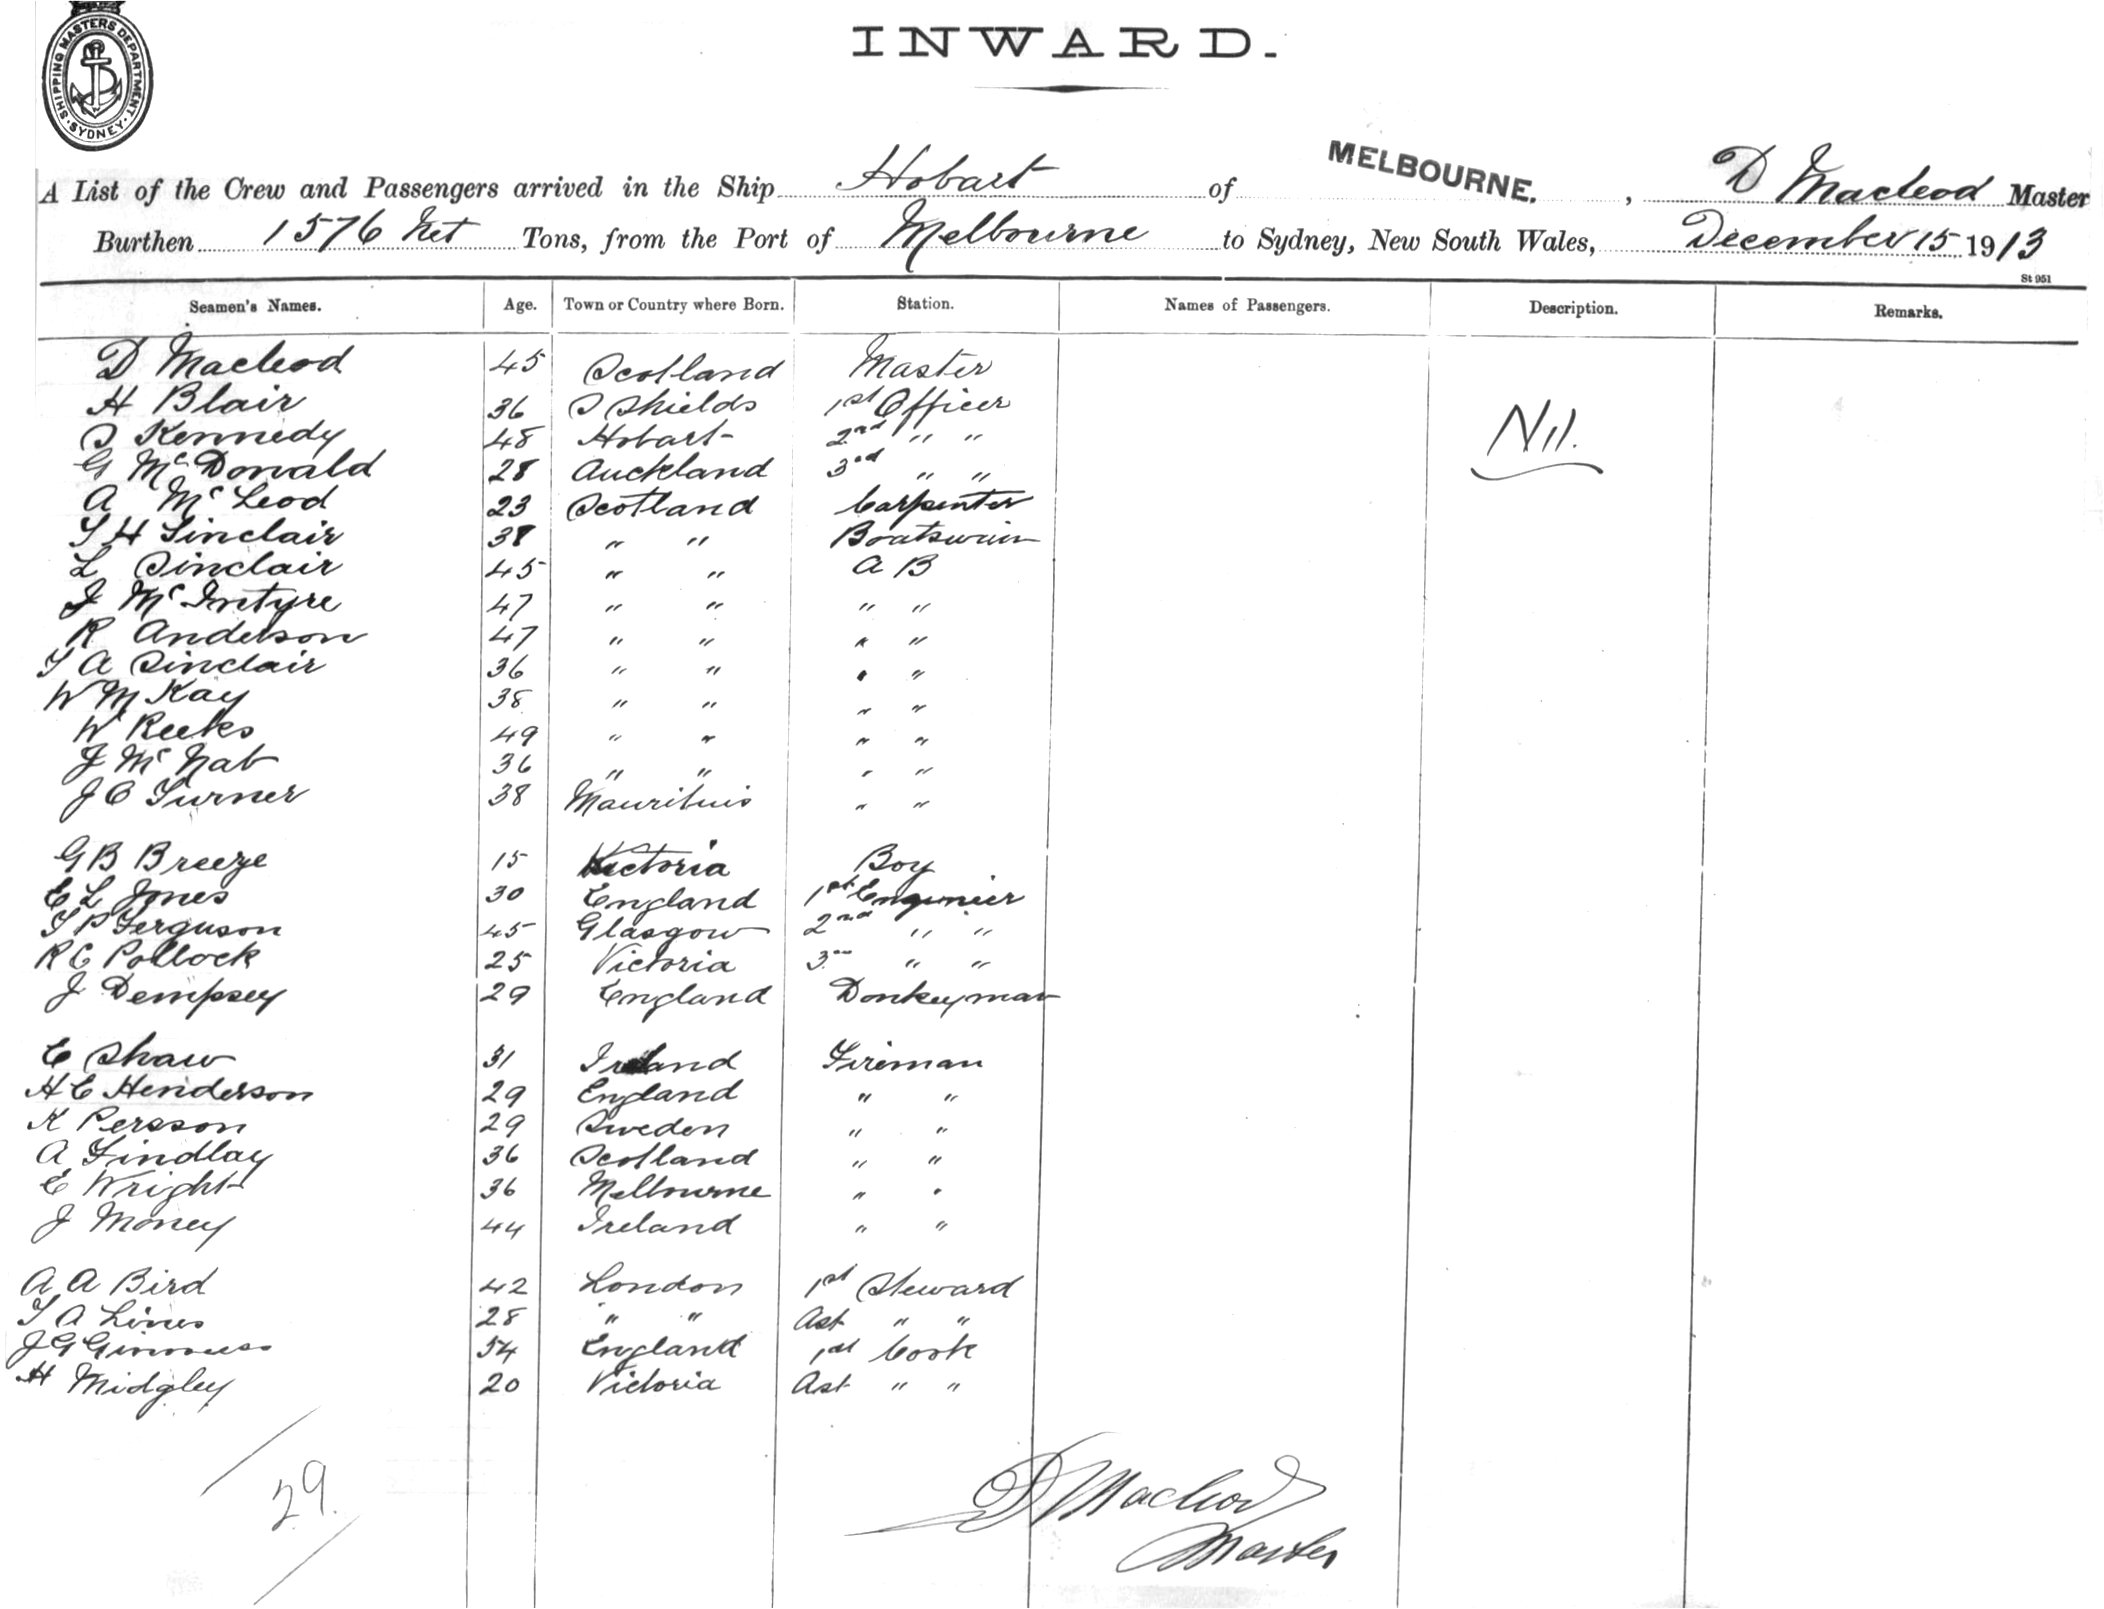 SHIPPING MASTERS DEPARTMENT. SYDNEY.
INWARD.
A List of the Crew and Passengers arrived in the Ship Hobart of MELBOURNE. , D Macleod Master
Burthen 1576 Net Tons, from the Port of Melbourne to Sydney, New South Wales, December 15 1913
St 951
Seamen's Names. Age. Town or Country where Born. Station. Names of Passengers. Description. Remarks.
D Macleod 45 Scotland Master
H Blair 36 S Shields 1st Officer
S Kennedy 48 Hobart 2nd " " Nil.
G McDonald 28 Auckland 3rd " "
A McLeod 23 Scotland Carpenter
T H Sinclair 38 " " Boatswain
L Sinclair 45 " " A B
J McIntyre 47 " " " "
R Anderson 47 " " " "
T A Sinclair 36 " " " "
W McKay 38 " " " "
W Reeks 49 " " " "
J McNab 36 " " " "
J C Turner 38 Mauritius " "
G B Breeze 15 Victoria Boy
E L Jones 30 England 1st Engineer
T P Ferguson 45 Glasgow 2nd " "
R C Pollock 25 Victoria 3rd " "
J Dempsey 29 England Donkeyman
E Shaw 31 Ireland Fireman
H E Henderson 29 England " "
K Persson 29 Sweden " "
A Findlay 36 Scotland " "
E Wright 36 Melbourne " "
J Money 44 Ireland " "
A A Bird 42 London 1st Steward
T A Lines 28 " " Ast " "
J G 54 England 1st Cook
H Midgley 20 Victoria Ast " "
29.
D Macleod
Master